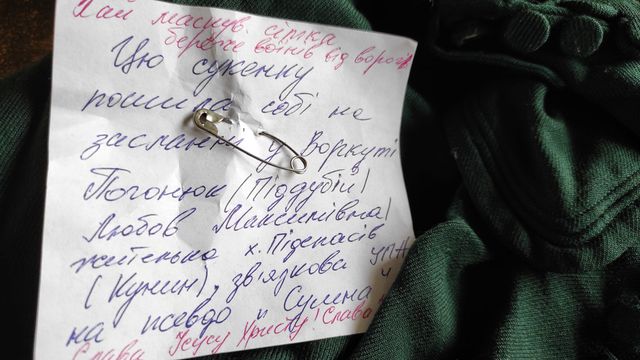 Хай маскув. сітка
береже воїнів від ворогів
Цю сукенку
пошила собі на
засланні у Воркуті
Погонюк (Піддубій)
Любов Максимівна
жителька х. Підспасів
(Кунин), зв'язкова УПА
на псевдо "Сумна"
Слава Ісусу Христу! Слава